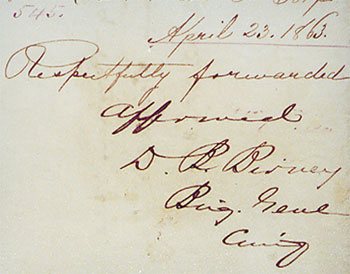 545.
April 23. 1863.
Respectfully forwarded
approved
D. B. Birney
Brig. Genl
Comg